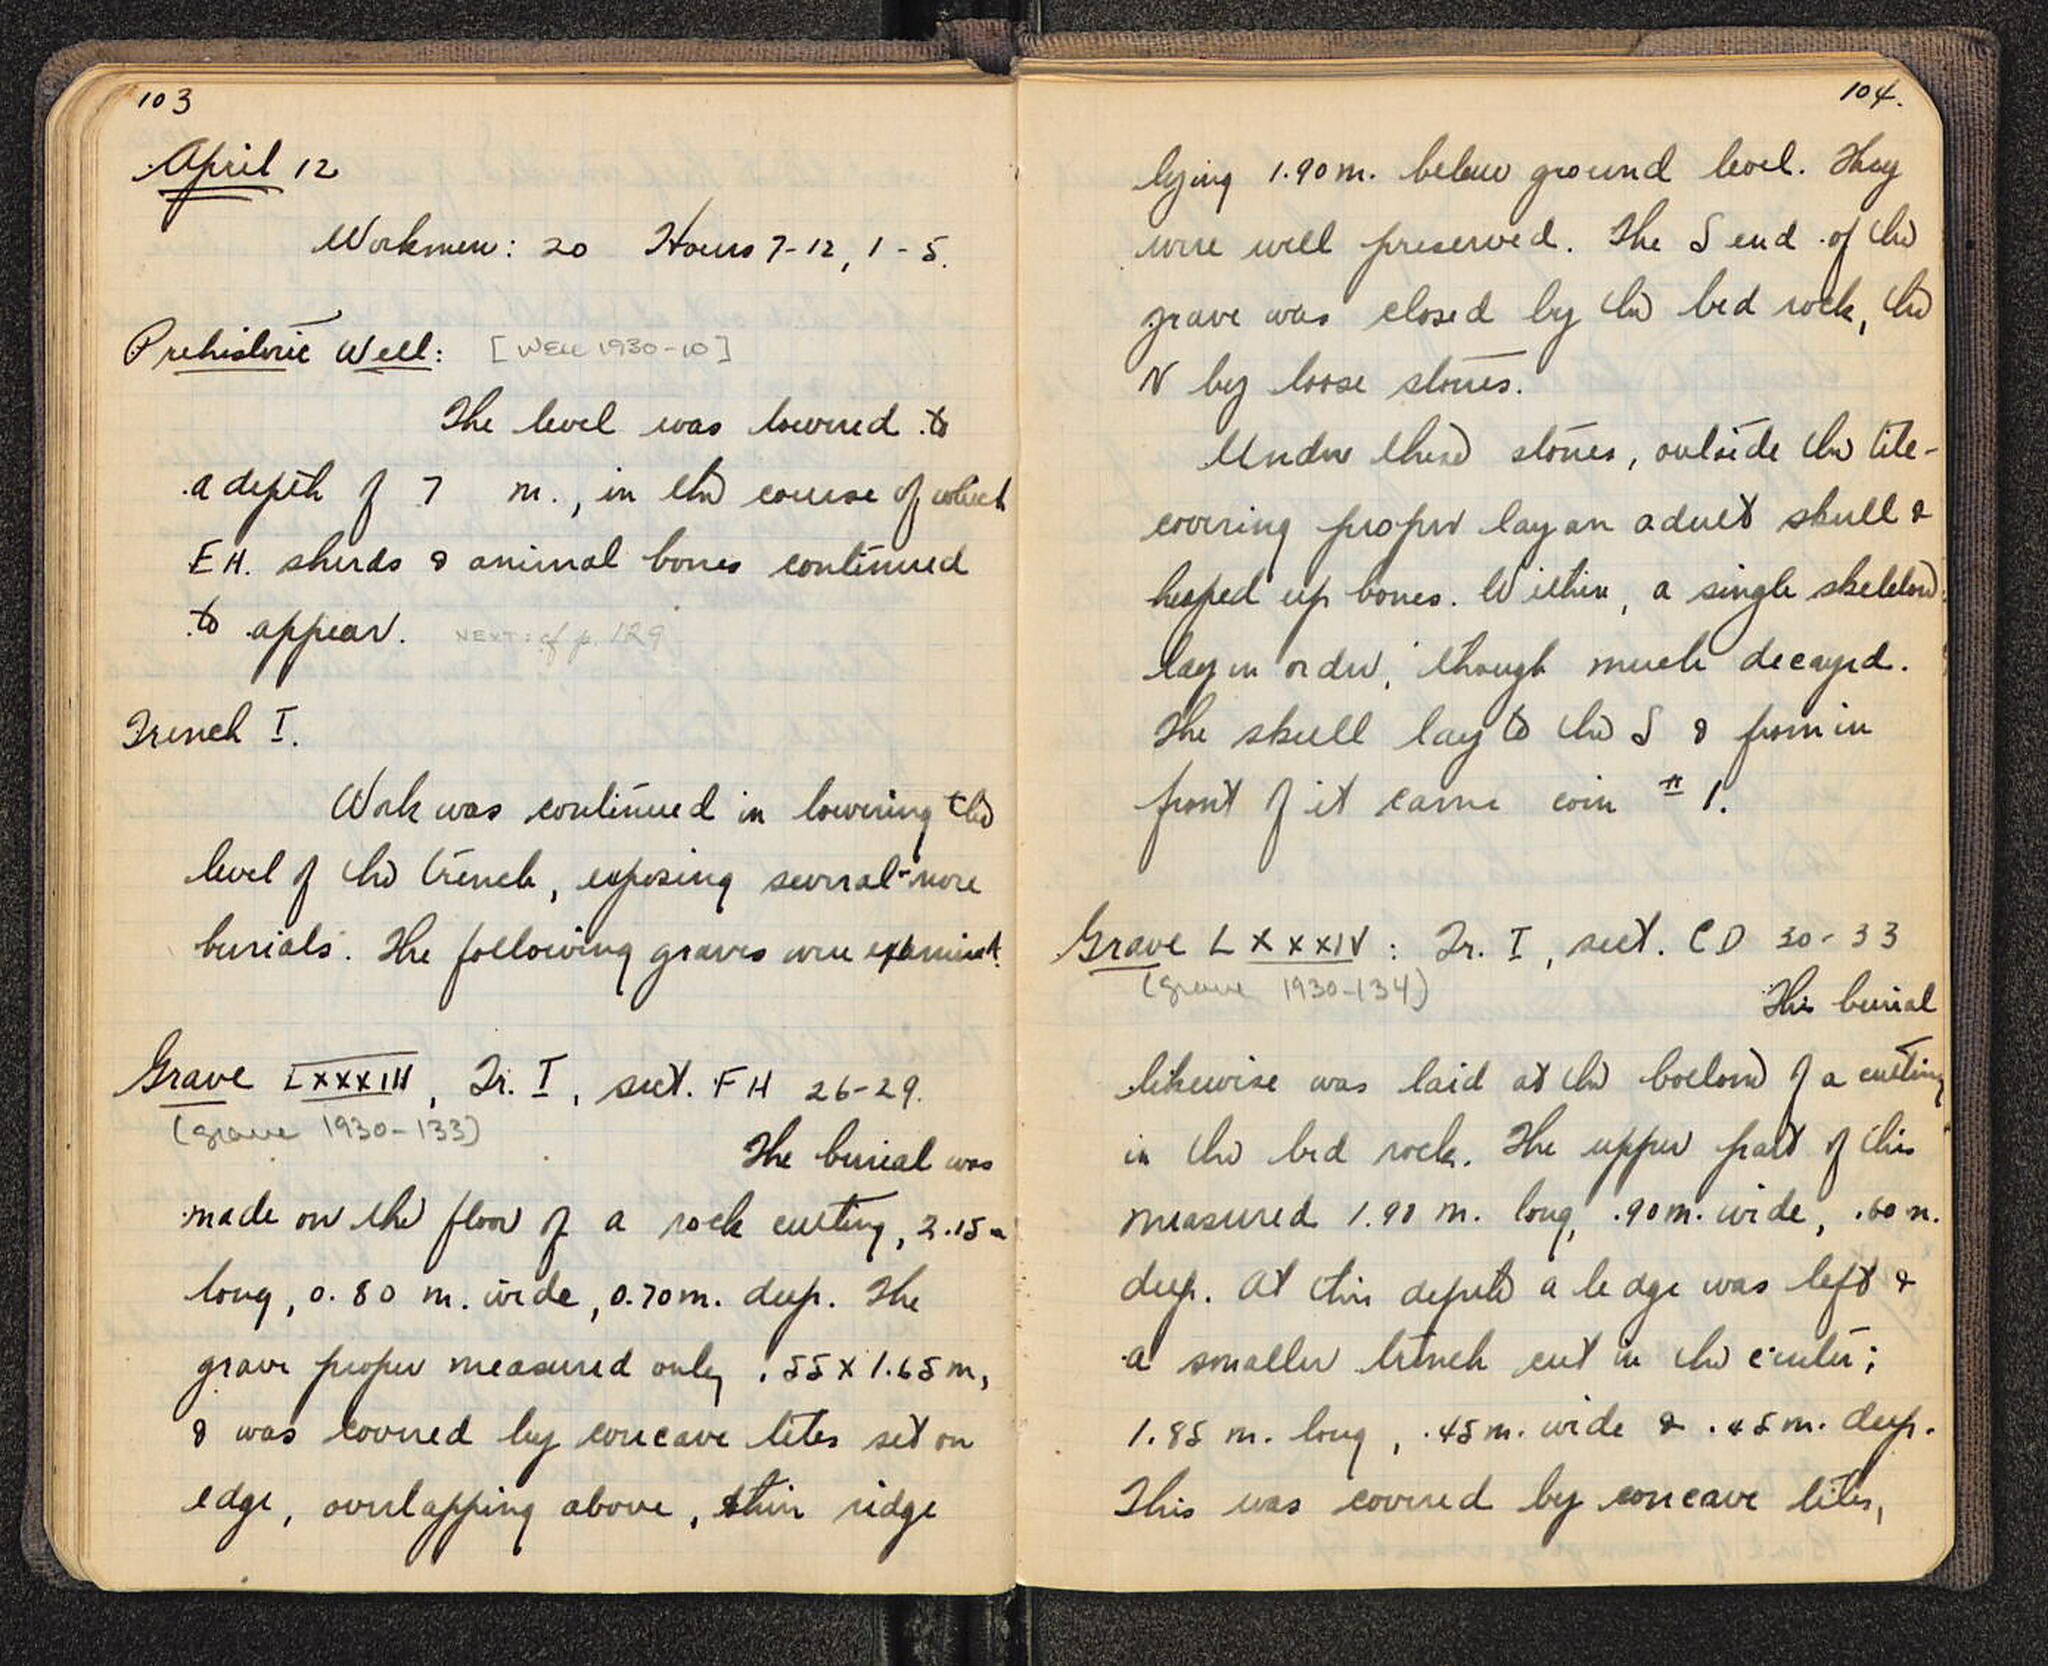 103
April 12
Workmen: 20 Hours 7-12, 1-5.
Prehistoric Well: [WELL 1930-10]
The level was lowered to
a depth of 7 m., in the course of which
EH. sherds & animal bones continued
to appear. NEXT: cf p. 129
Trench I.
Work was continued in lowering the
level of the trench, exposing several more
burials. The following graves were examined.
Grave LXXXIII, Tr. I, sect. FH 26-29.
(grave 1930-133)
The burial was
made on the floor of a rock cutting, 2.15 m
long, 0.80 m. wide, 0.70 m. deep. The
grave proper measured only .55 x 1.65 m,
& was covered by concave tiles set on
edge, overlapping above, their ridge
104.
lying 1.90 m. below ground level. They
were well preserved. The S end of the
grave was closed by the bed rock, the
N by loose stones.
Under these stones, outside the tile-
covering proper lay an adult skull &
heaped up bones. Within, a single skeleton
lay in order, though much decayed.
The skull lay to the S & from in
front of it came coin # 1.
Grave LXXXIV: Tr. I, sect. CD 30-33
(grave 1930-134)
This burial
likewise was laid at the bottom of a cutting
in the bed rock. The upper part of this
measured 1.90 m. long, .90 m. wide, .60 m.
deep. At this depth a ledge was left &
a smaller trench cut in the center;
1.85 m. long, .45 m. wide & .45 m. deep.
This was covered by concave tiles,